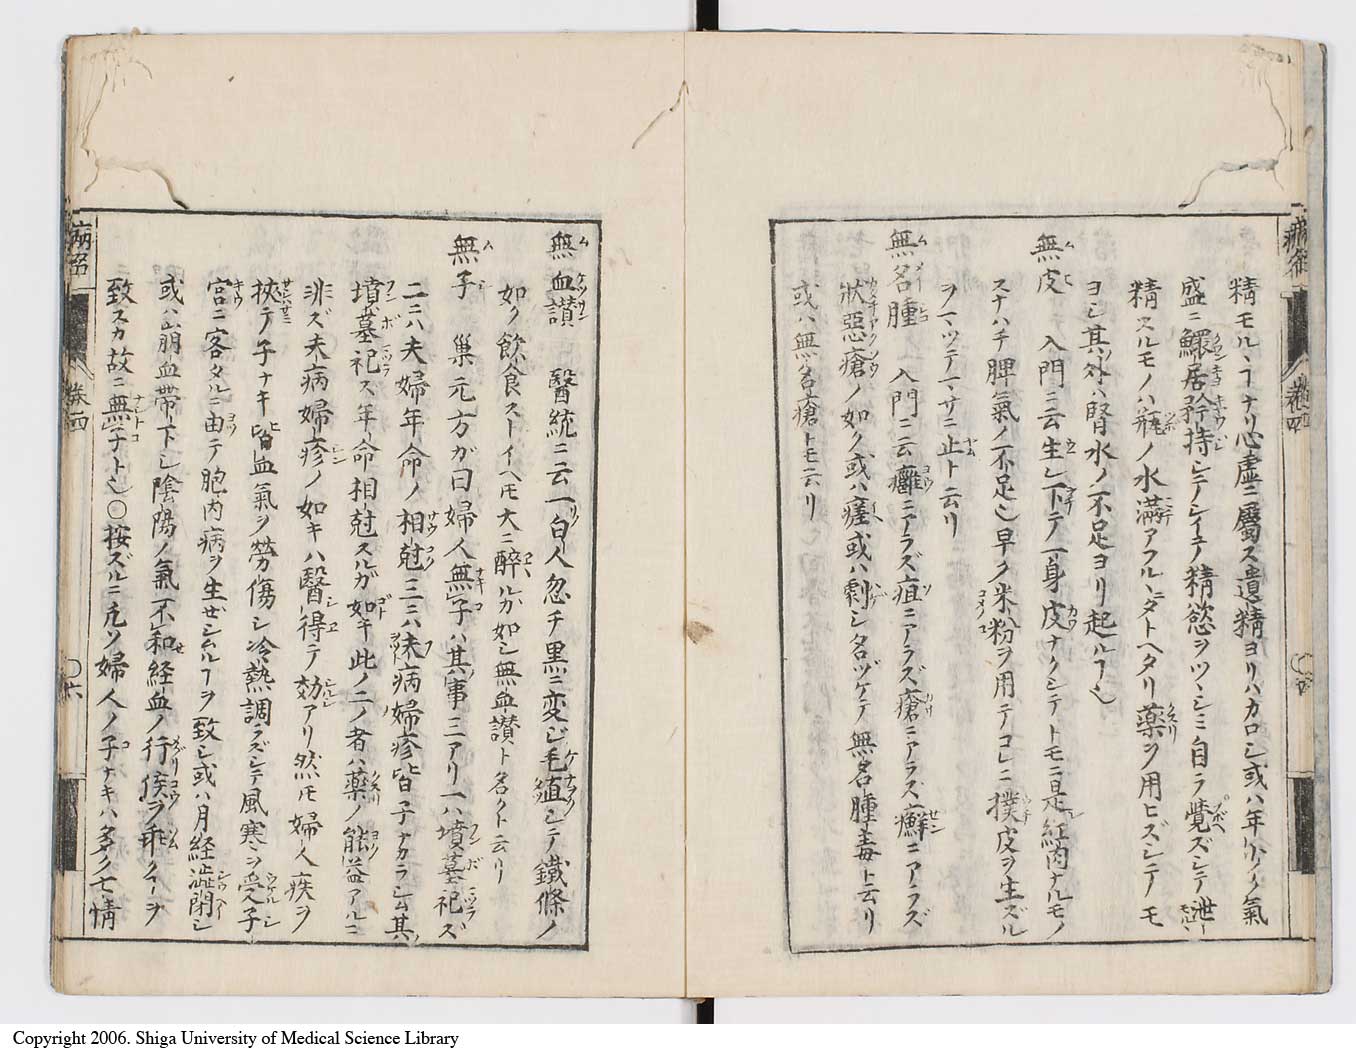 精モルヽナリ心虚ニ屬ス遺精ヨリハカロシ或ハ年少ノ氣
盛ニ鰥居矜持シテシイテ精慾ヲツヽシミ自ラ覺ズシテ泄
精スルモノハ瓶ノ水滿アフルヽニタトヘタリ藥ヲ用ヒズシテモ
ヨシ其外ハ腎水ノ不足ヨリ起ル
無皮 入門ニ云生レ下テ一身皮ナクシテトモニ是紅肉ナルモノ
スナハチ脾氣ノ不足也早ク米粉ヲ用テコレニ撲皮ヲ生ズル
ヲマツテマサニ止ト云リ
無名腫 入門ニ云癰ニアラズ疽ニアラズ瘡ニアラズ癬ニアラズ
狀惡瘡ノ如ク或ハ瘥或ハ劇シ名ヅケテ無名腫毒ト云リ
或ハ無名瘡トモ云リ
無血讃 醫統ニ云一白人忽チ黒ニ変ジ毛殖シテ鐵條ノ
如ク飲食ストイヘモ大ニ醉ルガ如シ無血讃ト名クト云リ
無子 巢元方ガ曰婦人無子ハ其事三アリ一ハ墳墓祀ズ
二ニハ夫婦年命ノ相尅三ニハ夫病婦疹皆子ナカラシム其
墳墓祀ス年命相尅スルガ如キ此ノ二ノ者ハ藥ノ能益アルニ
非ズ夫病婦疹ノ如キハ醫得テ効アリ然モ婦人疾ヲ
挾テ子ナキ皆血氣ヲ勞傷シ冷熱調ラズシテ風寒ヲ受子
宮ニ客タルニ由テ胞内病ヲ生ゼシムルヲ致シ或ハ月経澁閉シ
或ハ崩血帯下シ陰陽ノ氣不和経血ノ行侯ヲ乖クヲ
致スカ故ニ無子ト也○按ズルニ凢ソ婦人ノ子ナキハ多ク七情
卷四
卷四
○六
Copyright 2006. Shiga University of Medical Science Library